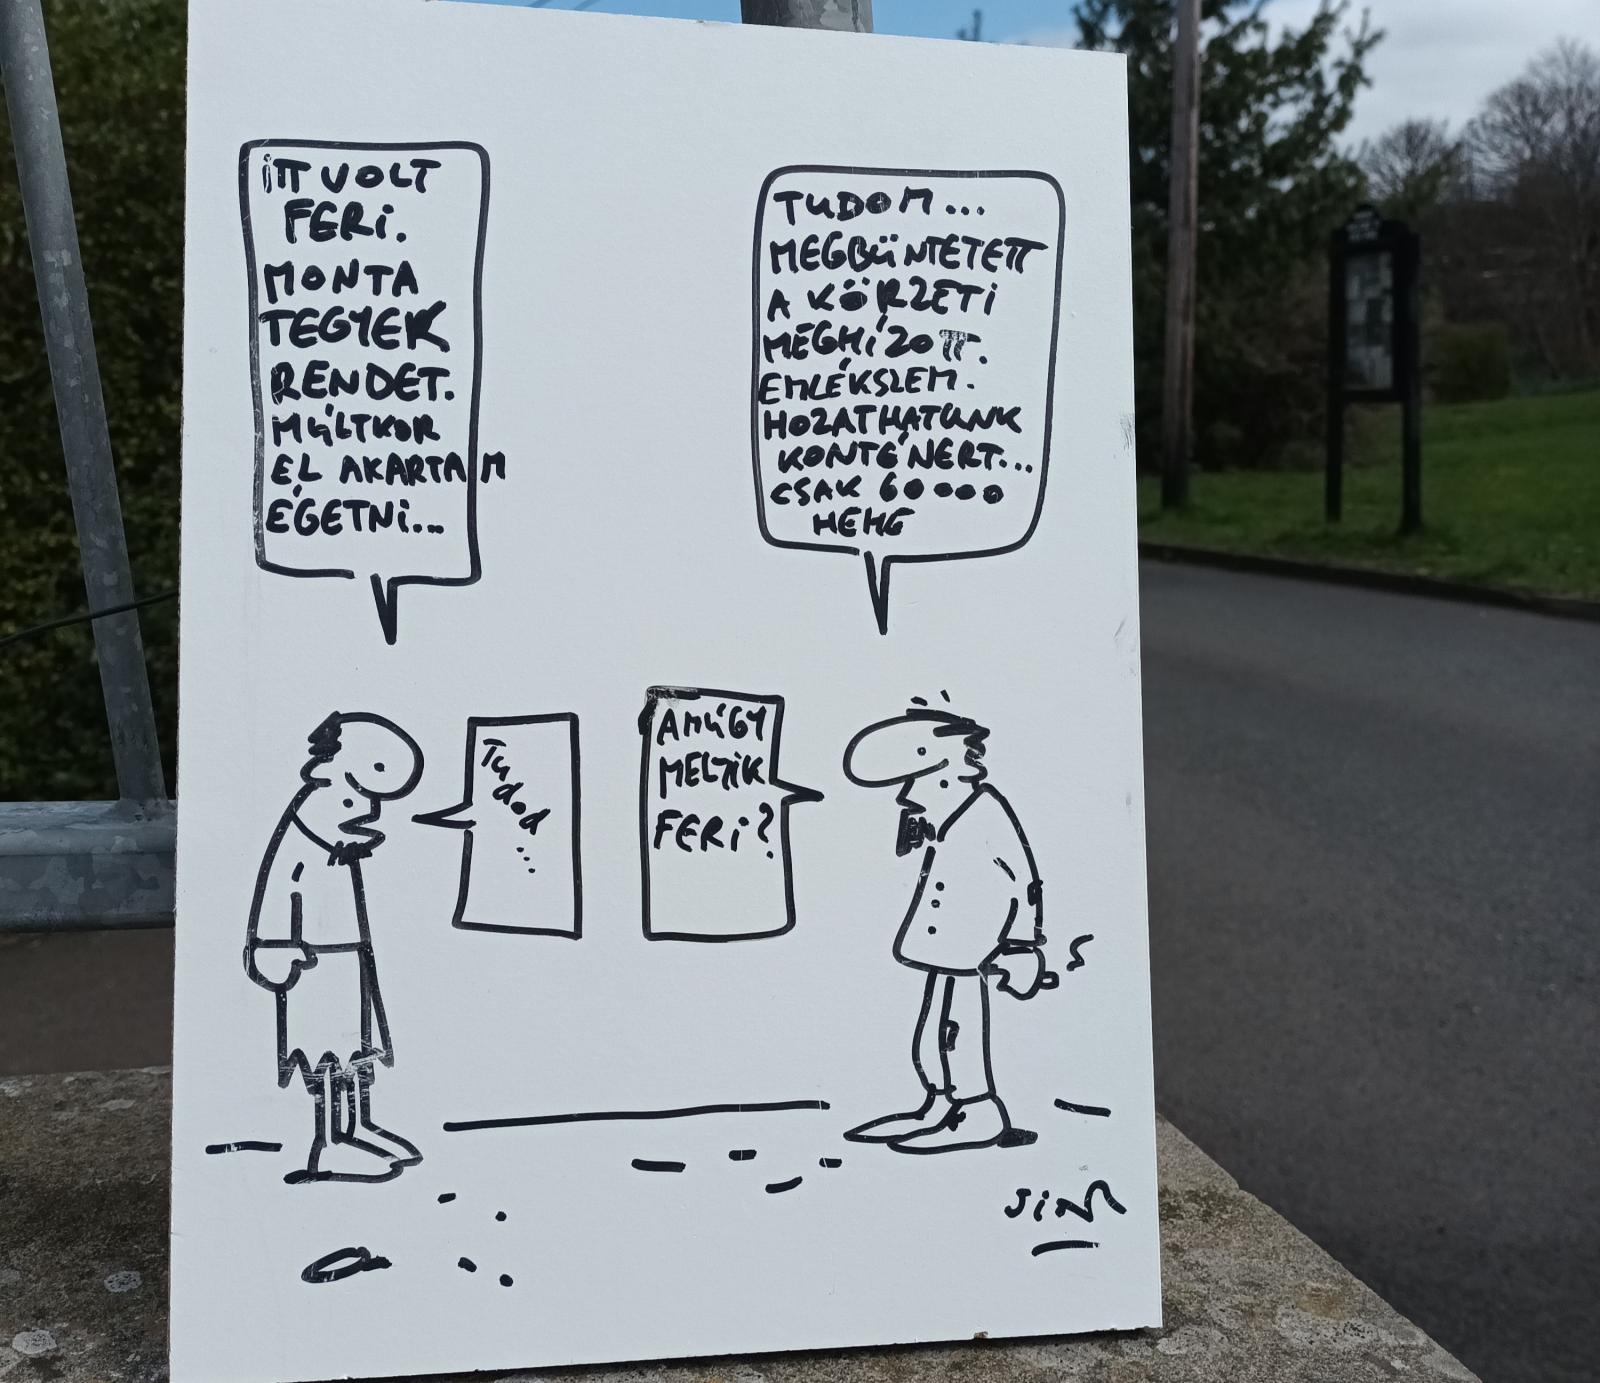 ITT VOLT
FERI.
MONTA
TEGYEK
RENDET.
MÚLTKOR
EL AKARTAM
ÉGETNI...
TUDOM...
MEGBÜNTETETT
A KÖRZETI
MEGHÍZOTT.
EMLÉKSZEM.
HOZATHATUNK
KONTÉNERT...
CSAK 60000
HEHE
Tudod
...
AMÚGY
MELYIK
FERI?